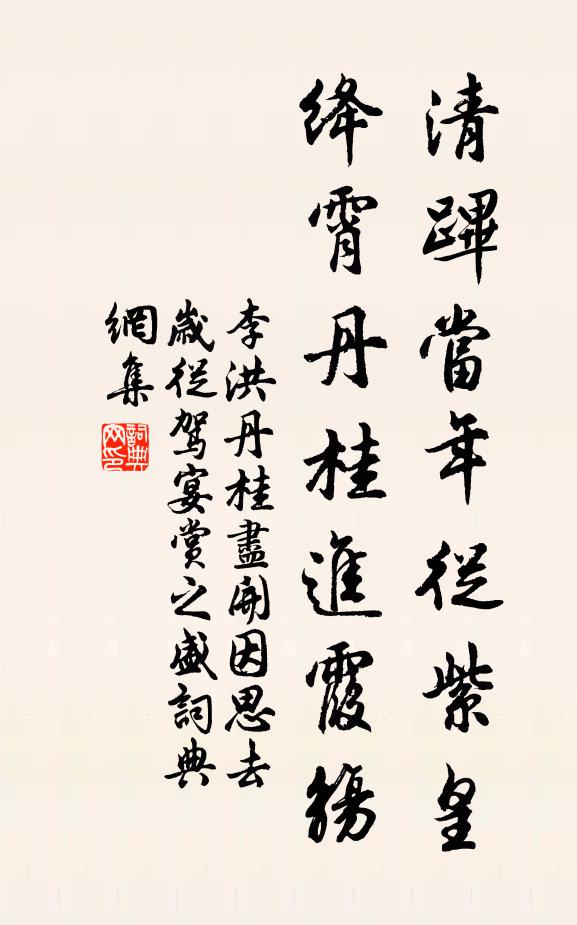 清蹕當年從紫皇
絳霄丹桂進霞觴
李洪丹桂盡開因思去
歲從駕宴賞之盛詞典
網集
詞典
网印